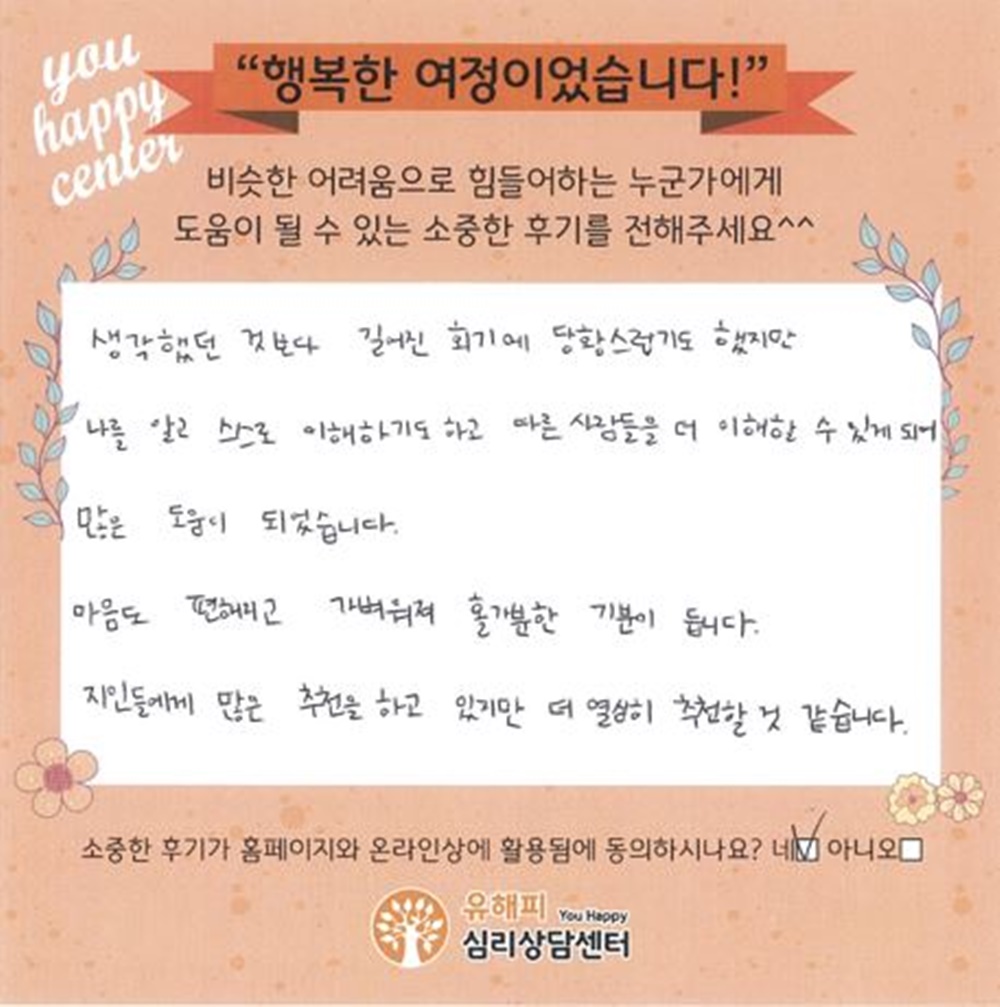 you
happy
center
“행복한 여정이었습니다!”
비슷한 어려움으로 힘들어하는 누군가에게
도움이 될 수 있는 소중한 후기를 전해주세요^^
생각했던 것보다 길어진 회기에 당황스럽기도 했지만
나를 알고 스스로 이해하기도 하고 따른 사람들을 더 이해할 수 있게 되어
많은 도움이 되었습니다.
마음도 편해지고 가벼워져 홀가분한 기분이 듭니다.
지인들에게 많은 추천을 하고 있지만 더 열심히 추천할 것 같습니다.
소중한 후기가 홈페이지와 온라인상에 활용됨에 동의하시나요? 네☑ 아니오☐
유해피 You Happy
심리상담센터